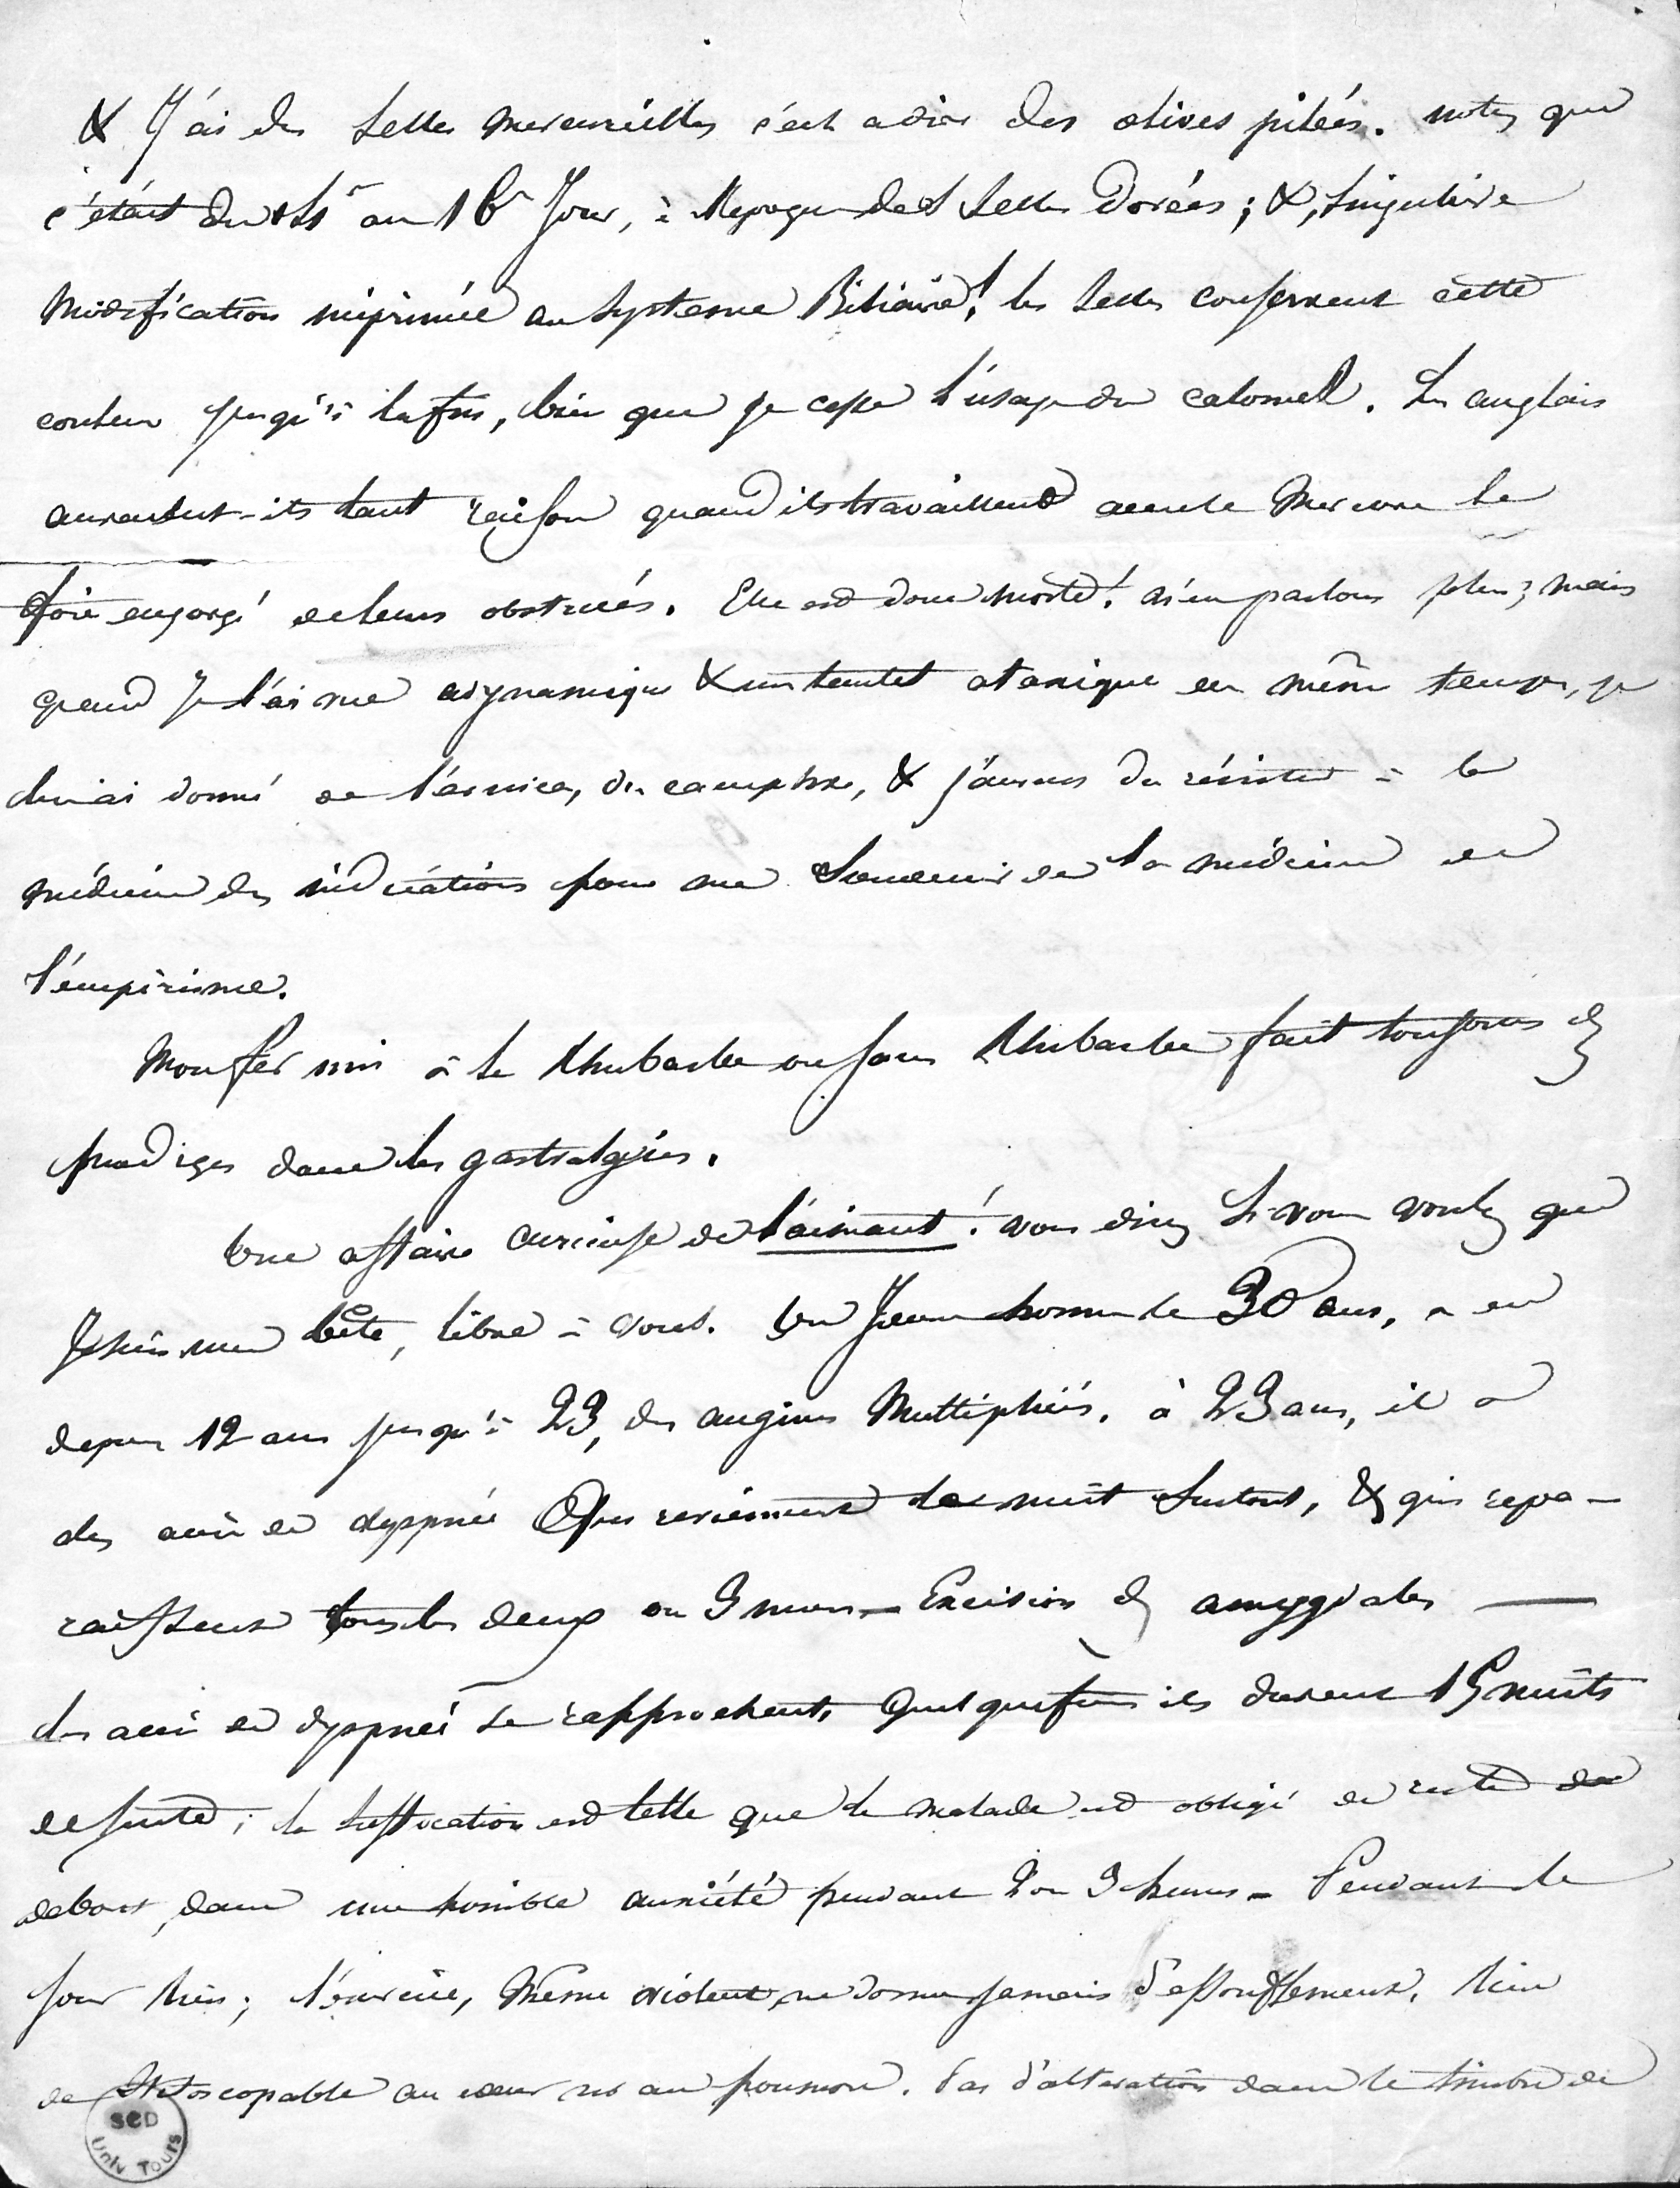 & J'ai des selles mercurielles c'est a dire des olives pilées. notez que
c'était du 14e au 16e Jour, à l'Epoque des selles dorées ; &, singuliere
modification imprimée au systeme Biliaire! les selles conservent cette
couleur jusqu'à la fin, bien que je cesse l'usage du calomel. Les anglais
auraient-ils tant raison quand ils travaillent avec le mercure le
foie engorgé de leurs obstrués. Elle est donc morte! n'en parlons plus ; mais
quand je l'ai vue adynamique & un tantet ataxique en même temps, je
lui ai donné de l'arnica, du camphre, & j'aurais du résister à la
médecine des indications pour me souvenir de la médecine de
l'empirisme.
Mon fer uni à la Rhubarbe ou sans Rhubarbe fait toujours des
prodiges dans les gastralgies.
Une affaire curieuse de l'aimant! vous direz si vous voulez que
Je suis une bête, libre à vous. Un Jeune homme de 30 ans, a eu
depuis 12 ans jusqu'à 23, des angines multipliées. à 23 ans, il a
des accès de dyspnée Qui reviennent la nuit surtout, & qui repa-
raissent tous les deux ou 3 mois — Excision des amygdales —
les accès de dyspnée se rapprochent, quelquefois ils durent 15 nuits
de suite ; la suffocation est telle que le malade est obligé de rester
debout, dans une horrible anxiété pendant 2 ou 3 heures — Pendant le
jour rien ; l'exercice, même violent, ne donne jamais d'essoufflement. Rien
de stetoscopable au cœur ni au poumon. Pas d'altération dans le timbre de
SCD
Univ Tours